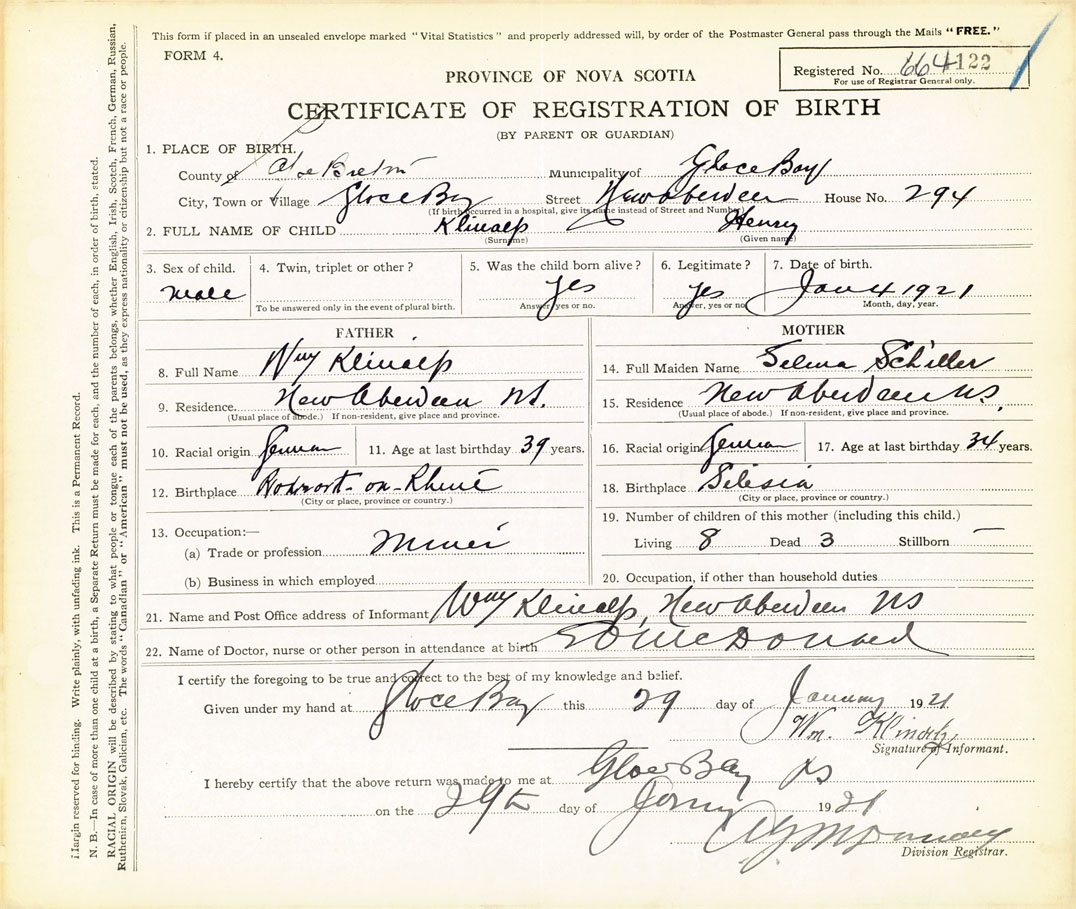 This form if placed in an unsealed envelope marked "Vital Statistics" and properly addressed will, by order of the Postmaster General pass through the Mails "FREE."
FORM 4.
Registered No. 664122
For use of Registrar General only.
PROVINCE OF NOVA SCOTIA
CERTIFICATE OF REGISTRATION OF BIRTH
(BY PARENT OR GUARDIAN)
1. PLACE OF BIRTH.
County of Cape Breton Municipality of Glace Bay
City, Town or Village Glace Bay Street New Aberdeen House No. 294
(If birth occurred in a hospital, give its name instead of Street and Number)
2. FULL NAME OF CHILD Klinalp Henry
(Surname) (Given name)
3. Sex of child. male
4. Twin, triplet or other?
To be answered only in the event of plural birth.
5. Was the child born alive? yes
Answer, yes or no.
6. Legitimate? yes
Answer, yes or no
7. Date of birth. Jan 4 1921
Month, day, year.
FATHER
8. Full Name Wm Klinalp
9. Residence. New Aberdeen NS.
(Usual place of abode.) If non-resident, give place and province.
10. Racial origin German 11. Age at last birthday 39 years.
12. Birthplace on-Rhine
(City or place, province or country.)
13. Occupation:—
(a) Trade or profession Miner
(b) Business in which employed
MOTHER
14. Full Maiden Name Selma Schiller
15. Residence New Aberdeen NS,
(Usual place of abode.) If non-resident, give place and province.
16. Racial origin German 17. Age at last birthday 34 years.
18. Birthplace Silesia
(City or place, province or country.)
19. Number of children of this mother (including this child.)
Living 8 Dead 3 Stillborn —
20. Occupation, if other than household duties
21. Name and Post Office address of Informant Wm Klinalp, New Aberdeen NS
22. Name of Doctor, nurse or other person in attendance at birth McDonald
I certify the foregoing to be true and correct to the best of my knowledge and belief.
Given under my hand at Glace Bay this 29 day of January 1921
Wm.
Signature of Informant.
I hereby certify that the above return was made to me at Glace Bay NS
on the 29th day of 1921
Division Registrar.
Margin reserved for binding. Write plainly, with unfading ink. This is a Permanent Record.
N. B.—In case of more than one child at a birth, a Separate Return must be made for each, and the number of each, in order of birth, stated.
RACIAL ORIGIN will be described by stating to what people or tongue each of the parents belongs, whether English, Irish, Scotch, French, German, Russian,
Ruthenien, Slovak, Galician, etc. The words "Canadian" or "American" must not be used, as they express nationality or citizenship but not a race or people.